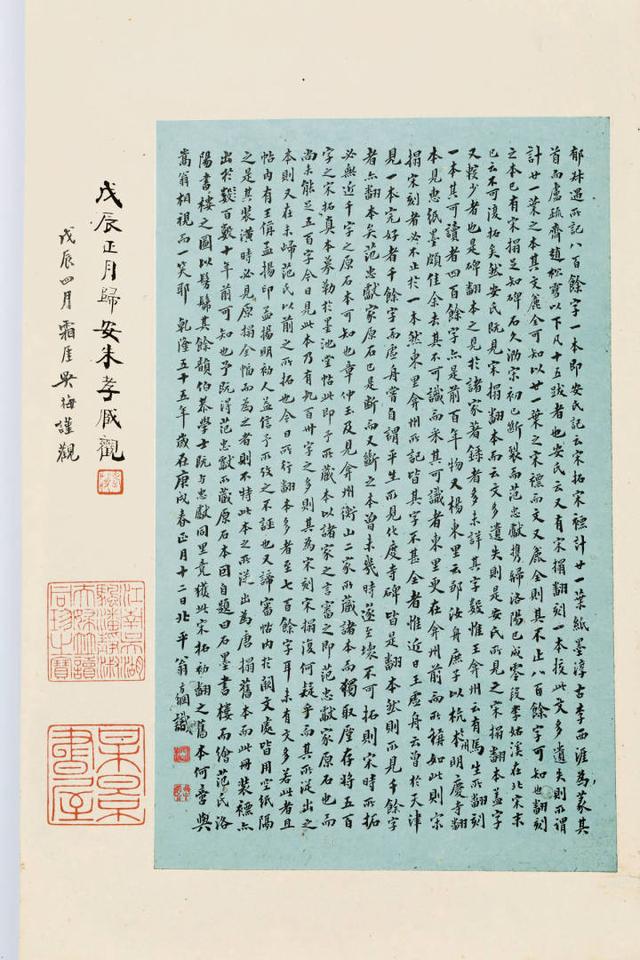 郁林過所記八百餘字一本即安氏記云宋拓宋褾計廿一葉紙墨淳古李西涯為篆其
首而盧疏齋趙松雪以下凡十五跋者也安氏云又有宋搨翻刻一本挍此文多遺失則所謂
計廿一葉之本其文庶全可知以廿一葉之宋褾而文又庶全則其不止八百餘字可知也翻刻
之本已有宋搨足知碑石久泐宋初已斷裂而范忠獻攜歸洛陽已成零段李姑溪在北宋末
已云不可復拓矣然安氏既見宋搨翻本而云文多遺失則是安氏所見之宋搨翻本蓋字
又較少者也是碑翻本之見於諸家著錄者多未詳其字數惟王弇州云有馬生所翻刻
一本其可讀者四百餘字亦是前百年物又楊東里云鄒汝舟庶子以杭州明慶寺翻
本見惠紙墨頗佳余去其不可識而采其可識者東里更在弇州前而所稱如此則宋
搨宋刻者必不止於一本然東里弇州所記皆其字不甚全者惟近日王虛舟云曾於天津
見一本完好者千餘字而虛舟嘗自謂平生所見化度寺碑皆是翻本然則所見千餘字
者亦翻本矣范忠獻家原石已是斷而又斷之本曾未幾時遂至壞不可拓則宋時所拓
必無近千字之原石本可知也章仲玉及見弇州衡山二家所藏諸本而獨取廑存將五百
字之宋拓真本摹勒於墨池堂帖此即予所藏本以諸家之言審之即范忠獻家原石也而
尚未能足五百字今日見此本乃有九百卅字之多則其為宋刻宋搨復何疑乎而其所從出之
本則又在未歸范氏以前之所拓也今日所行翻本多者至七百餘字耳未有文多若此者且
帖内有王偁孟揚印孟揚明初人益信予所攷之不誣也又諦審帖内於闕文處皆用空紙隔
之是其裝潢時必見原搨全幅而為之者則不特此本之所從出為唐搨舊本而此冊裝褾亦
出於數百數十年前可知也予既得范忠獻所藏原石本因自題曰石墨書樓而繪范氏洛
陽書樓之圖以髣髴其餘韻伯恭學士既與忠獻同里竟獲此宋拓初翻之舊本何啻與
嵩翁相視而一笑耶 乾隆五十五年歲在庚戌春正月十二日北平翁方綱識
戊辰正月歸安朱孝臧觀
戊辰四月霜厓吳梅謹觀
江南吳湖
帆潘靜淑
夫婦並讀
同珍之寶
梅景
書屋